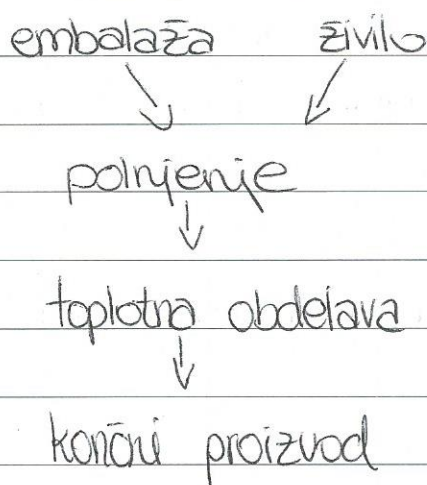 embalaža živilo
polnjenje
toplotna obdelava
končni proizvod